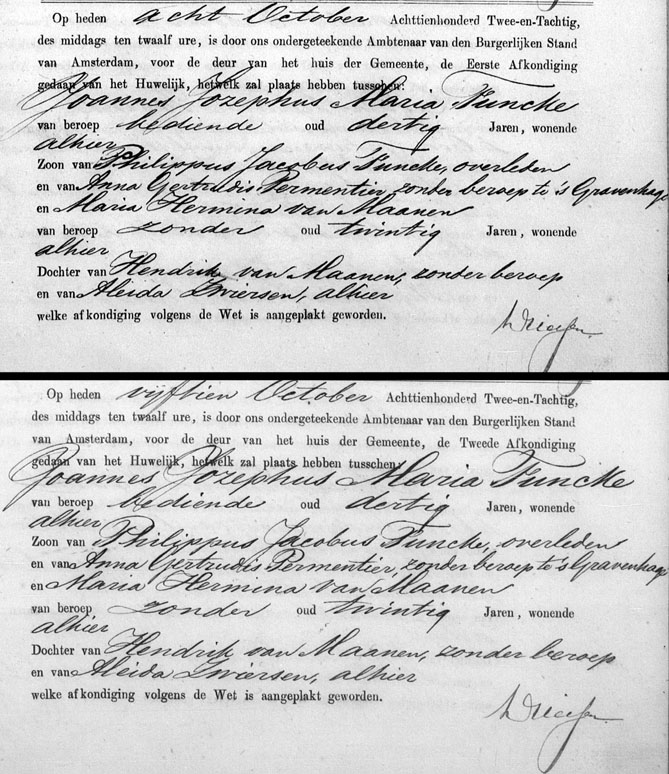 Op heden acht October Achttienhonderd Twee-en-Tachtig,
des middags ten twaalf ure, is door ons ondergeteekende Ambtenaar van den Burgerlijken Stand
van Amsterdam, voor de deur van het huis der Gemeente, de Eerste Afkondiging
gedaan van het Huwelijk, hetwelk zal plaats hebben tusschen:
Joannes Jozephus Maria Funcke
van beroep bediende oud dertig Jaren, wonende
alhier
Zoon van Philippus Jacobus Funcke, overleden
en van Anna Gertrudis Permentier, zonder beroep te 's Gravenhage
en Maria Hermina van Maanen
van beroep zonder oud twintig Jaren, wonende
alhier
Dochter van Hendrik van Maanen, zonder beroep
en van Aleida Zwiersen, alhier
welke afkondiging volgens de Wet is aangeplakt geworden.
Op heden vijftien October Achttienhonderd Twee-en-Tachtig,
des middags ten twaalf ure, is door ons ondergeteekende Ambtenaar van den Burgerlijken Stand
van Amsterdam, voor de deur van het huis der Gemeente, de Tweede Afkondiging
gedaan van het Huwelijk, hetwelk zal plaats hebben tusschen:
Joannes Jozephus Maria Funcke
van beroep bediende oud dertig Jaren, wonende
alhier
Zoon van Philippus Jacobus Funcke, overleden
en van Anna Gertrudis Permentier, zonder beroep te 's Gravenhage
en Maria Hermina van Maanen
van beroep zonder oud twintig Jaren, wonende
alhier
Dochter van Hendrik van Maanen, zonder beroep
en van Aleida Zwiersen, alhier
welke afkondiging volgens de Wet is aangeplakt geworden.